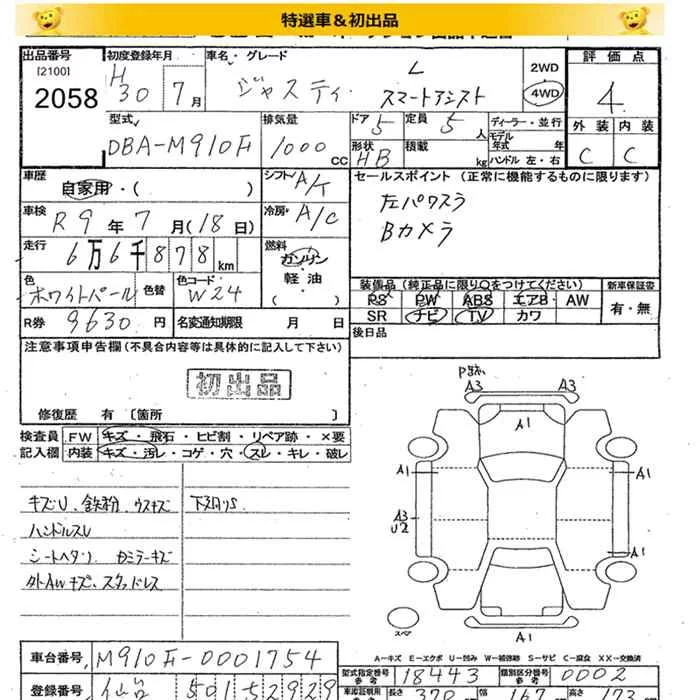 特選車&初出品
出品番号
[2100]
2058
初度登録年月
H30 7月
車名・グレード
ジャスティ L
スマートアシスト
2WD
4WD
評価点
4
外装 内装
C C
型式
DBA-M910F
排気量
1000 CC
ドア 5
形状 HB
定員 5人
積載 kg
ディーラー・並行
モデル年式 年
ハンドル 左・右
車歴
自家用・( )
シフト A/T
セールスポイント (正常に機能するものに限ります)
左パワスラ
Bカメラ
車検
R9年7月(18日)
冷房 A/C
走行
6万6千878km
燃料
ガソリン
軽油
( )
色
ホワイトパール
色替
色コード
W24
装備品 (純正品に限り○をつけてください)
PS PW ABS エアB AW
SR ナビ TV カワ
新車保証書
有・無
R券 9630円
名変通知期限 月 日
後日品
注意事項申告欄(不具合内容等は具体的に記入して下さい)
初出品
修復歴 有 〔箇所 〕
検査員記入欄
FW キズ・飛石・ヒビ割・リペア跡・×要
内装 キズ・汚レ・コゲ・穴・スレ・キレ・破レ
キズU、鉄粉、ウスキズ
ハンドルスレ
シートヘタリ
外AWキズ、スタッドレス
下回りS
P跡
A3 A3
A1
A1 A1
A3
U2
A1
A1
スペア
A=キズ E=エクボ U=凹み W=補修跡 S=サビ C=腐食 XX=交換済
車台番号 M910F-0001754
型式指定番号 18443
類別区分番号 0002
登録番号 仙台 501 52929
長さ 370 幅 167 高さ 173